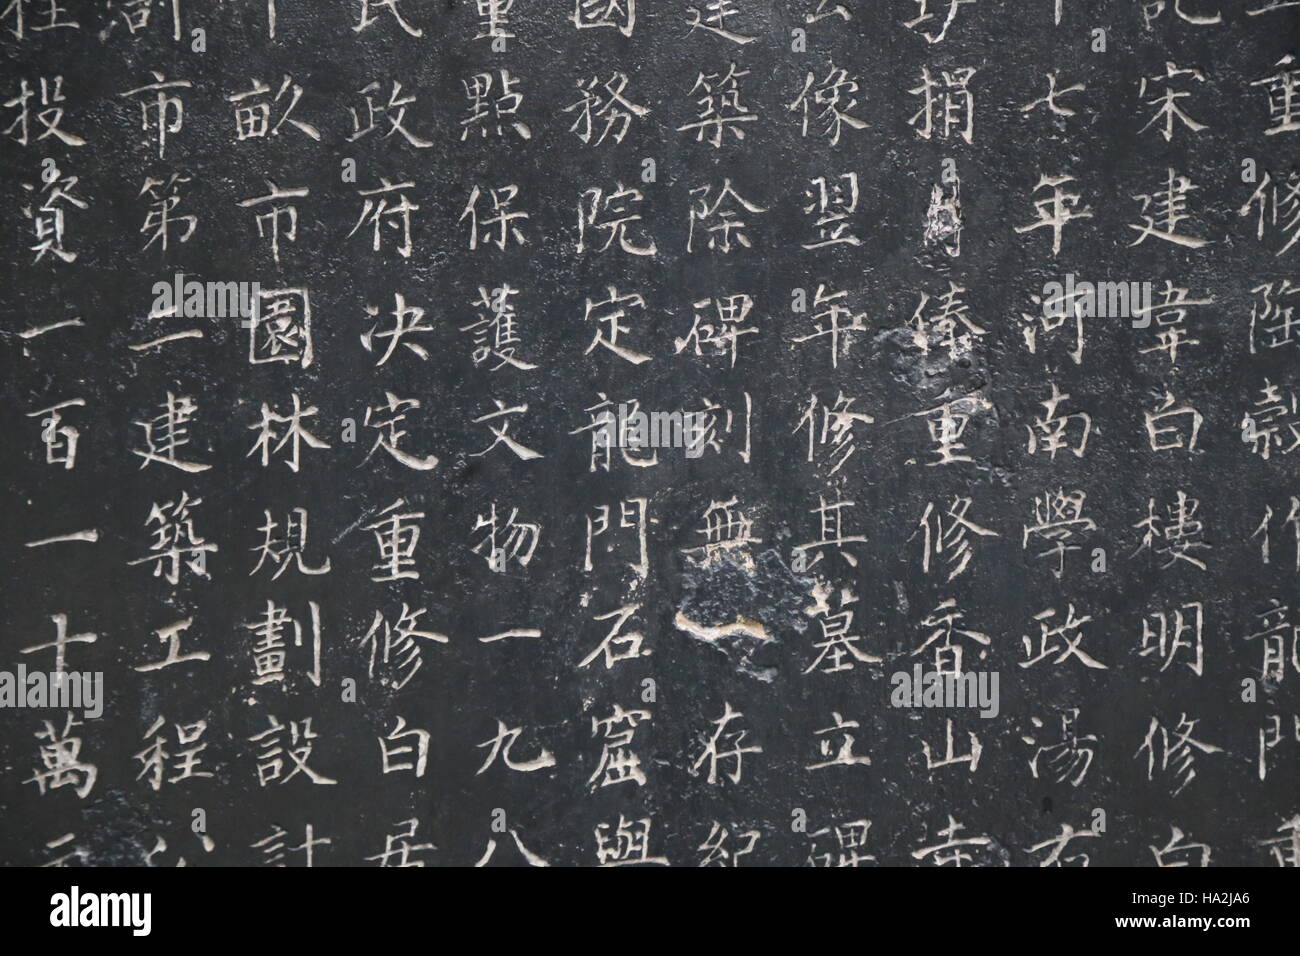 重修陞穀作龍門
記宋建韋白樓明修白
十七年河南學政湯右
捐月俸重修香山寺
公像翌年修其墓立碑
建築除碑刻無存紀
國務院定龍門石窟與
重點保護文物一九八
民政府決定重修白居
十畝市園林規劃設計
市第二建築工程公
投資一百一十萬元
alamy stock photo
HA2JA6
www.alamy.com